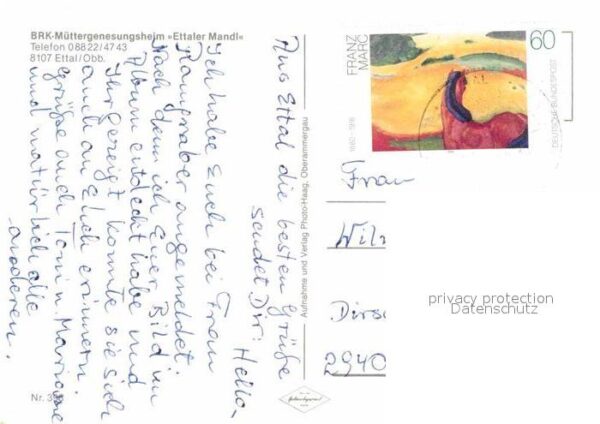 BRK-Müttergenesungsheim »Ettaler Mandl«
Telefon 08822/4743
8107 Ettal/Obb.
Aus Ettal die besten Grüße
sendet Dir: Hella-
Ich habe Euch bei Frau
angemeldet.
Nach dem ich Euer Bild im
Album entdeckt habe und
Ihr gezeigt konnte sie sich
auch an Elich erinnern.
grüße auch Toni u. Marianne
und natürlich alle
anderen.
Nr. 
Aufnahme und Verlag Photo-Haag, Oberammergau
FRANZ
MARC
1880 - 1916
60
DEUTSCHE BUNDESPOST
Frau
Dirs
2940
privacy protection
Datenschutz